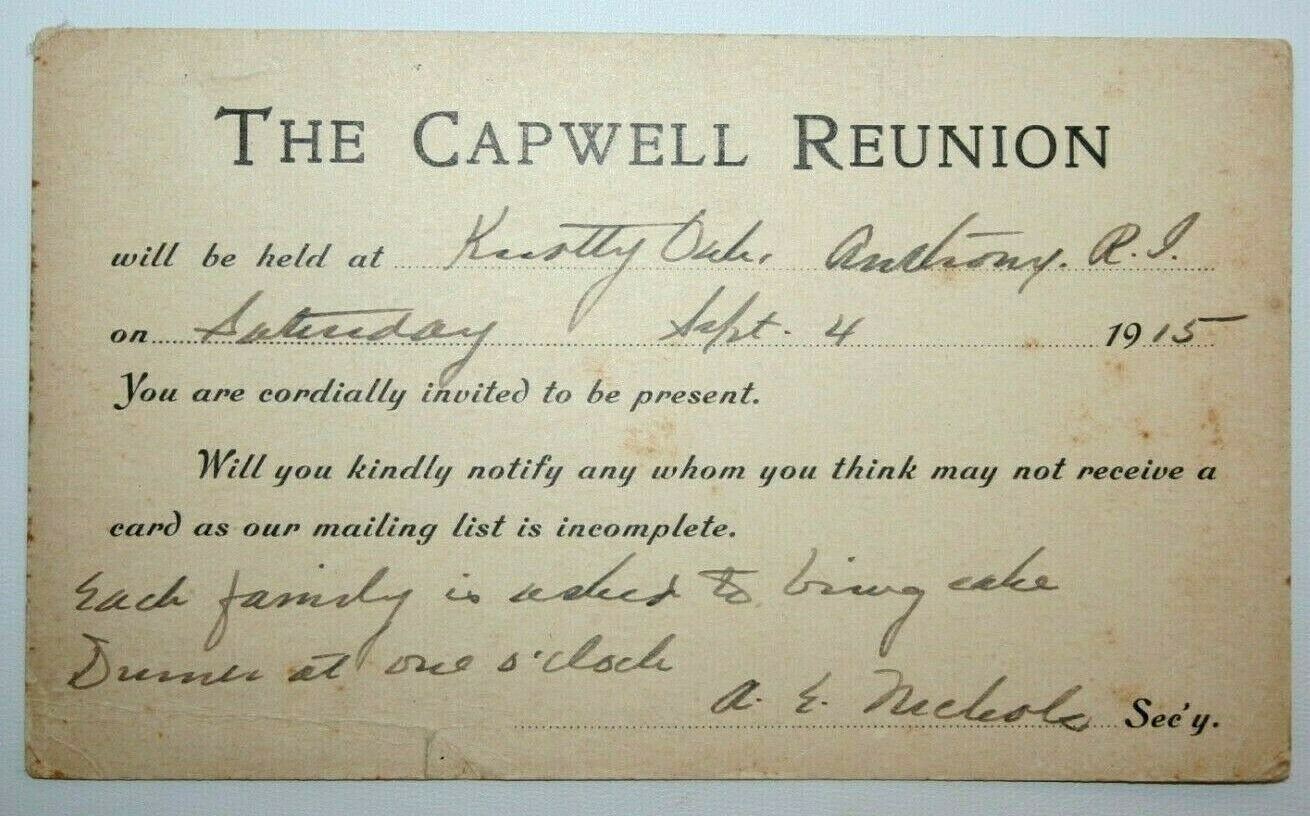 THE CAPWELL REUNION
will be held at Knotty Oak, Anthony. R.I.
on Saturday Sept. 4 1915
You are cordially invited to be present.
Will you kindly notify any whom you think may not receive a
card as our mailing list is incomplete.
Each family is asked to bring cake
Dinner at one o'clock
A. E. Nichols Sec'y.